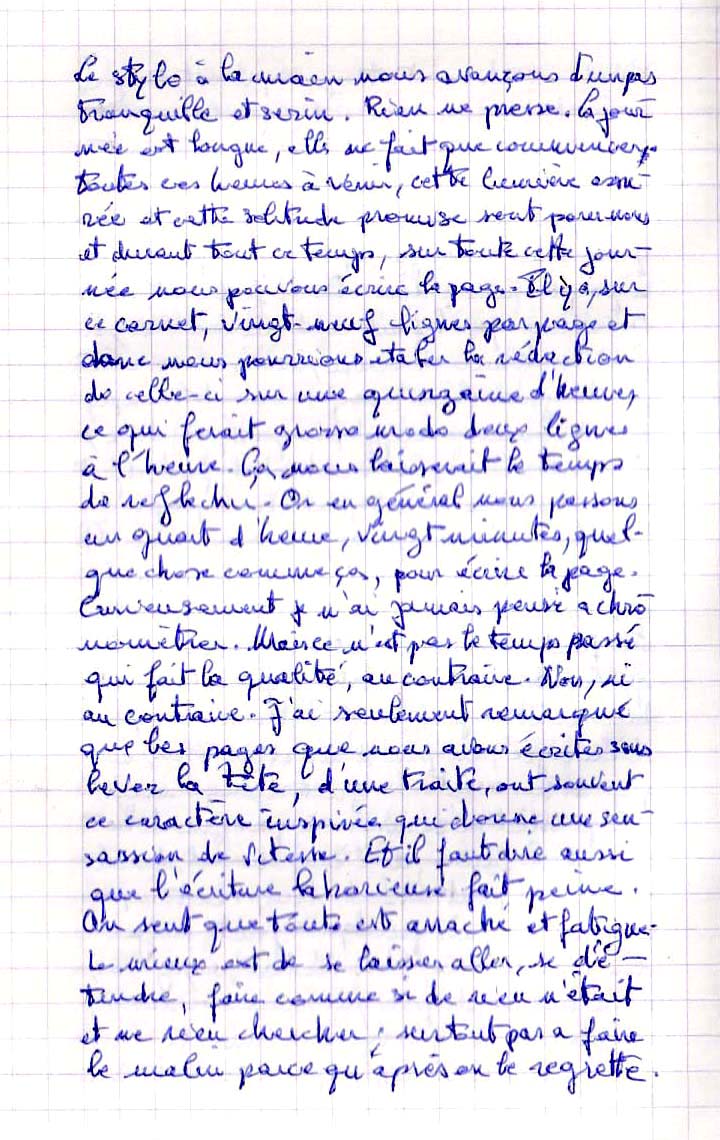 Le stylo à la main nous avançons d'un pas
tranquille et serein. Rien ne presse. La jour
née est longue, elle ne fait que commencer,
toutes ces heures à venir, cette lumière azu-
rée et cette solitude promise sont pour nous
et durant tout ce temps, sur toute cette jour-
née nous pouvons écrire la page. Il y a, sur
ce carnet, vingt-neuf lignes par page et
donc nous pourrions étaler la rédaction
de celle-ci sur une quinzaine d'heures,
ce qui ferait grosso modo deux lignes
à l'heure. Ça nous laisserait le temps
de réfléchir. Or en général nous passons
un quart d'heure, vingt minutes, quel-
que chose comme ça, pour écrire la page.
Curieusement je n'ai jamais pensé a chro
nomètrer. Mais ce n'est pas le temps passé
qui fait la qualité, au contraire. Non, ni
au contraire. J'ai seulement remarqué
que les pages que nous avons écrites sans
lever la tête, d'une traite, ont souvent
ce caractère inspirée qui donne une sen-
sassion de vitesse. Et il faut dire aussi
que l'écriture laborieuse fait peine.
On sent que toute est arraché et fatigue.
Le mieux est de se laisser aller, se dé-
tendre, faire comme si de rien n'était
et ne rien chercher, surtout pas a faire
le malin parce qu'après on le regrette.